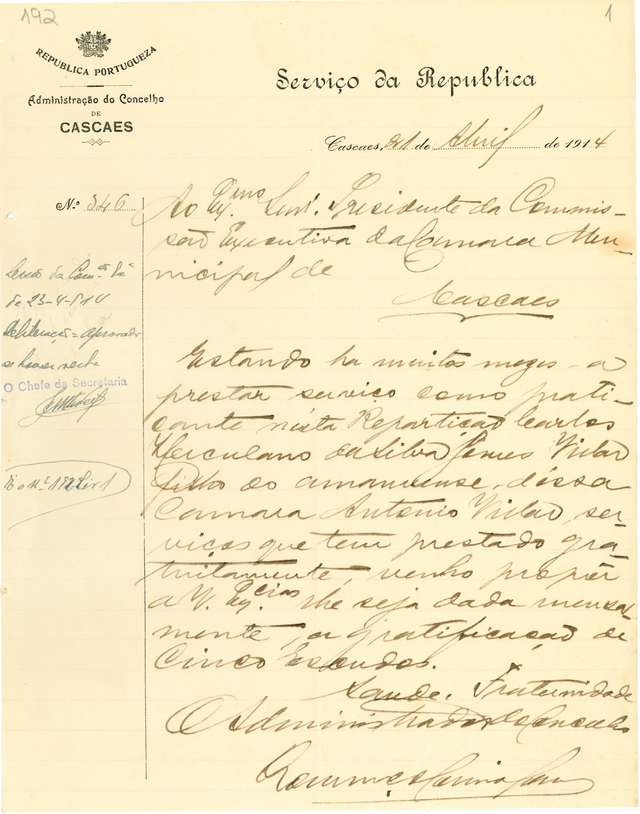 192
1
REPUBLICA PORTUGUEZA
Administração do Concelho
DE
CASCAES
Serviço da Republica
Cascaes, 21 de Abril de 1914
N.º 346
Ao Ex.mo Snr. Presidente da Commis-
são Executiva da Camara Mu-
nicipal de
Cascaes
de 23-4-914
Deliberação = aprovado
se houver verba
O Chefe da Secretaria
Estando ha muitos mezes a
prestar serviço como prati-
cante nésta Repartição Carlos
Herculano da Silva Gomes Vilar
filho do amanuense, déssa
Camara Antonio Vilar, ser-
viços que tem prestado gra-
tuitamente, venho propôr
a V. Ex.cias lhe seja dada mensal-
mente, a gratificação de
Cinco Escudos.
Saude e Fraternidade
O Administrador do Concelho